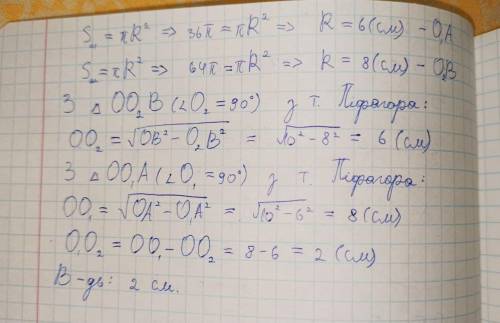 Sкр = πR² => 36π = πR² => R = 6 (см) - O₁A
Sкр = πR² => 64π = πR² => R = 8 (см) - O₂B
З △ OO₂B (∠O₂ = 90°) з т. Піфагора:
OO₂ = √OB² - O₂B² = √10² - 8² = 6 (см)
З △ OO₁A (∠O₁ = 90°) з т. Піфагора:
OO₁ = √OA² - O₁A² = √10² - 6² = 8 (см)
O₁O₂ = OO₁ - OO₂ = 8 - 6 = 2 (см)
В-дь: 2 см.